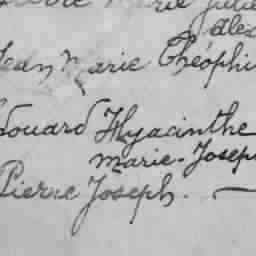 Marie Julie
alex
Jean Marie Théophi
Edouard Hyacinthe
Marie-Josep
Pierre Joseph. —